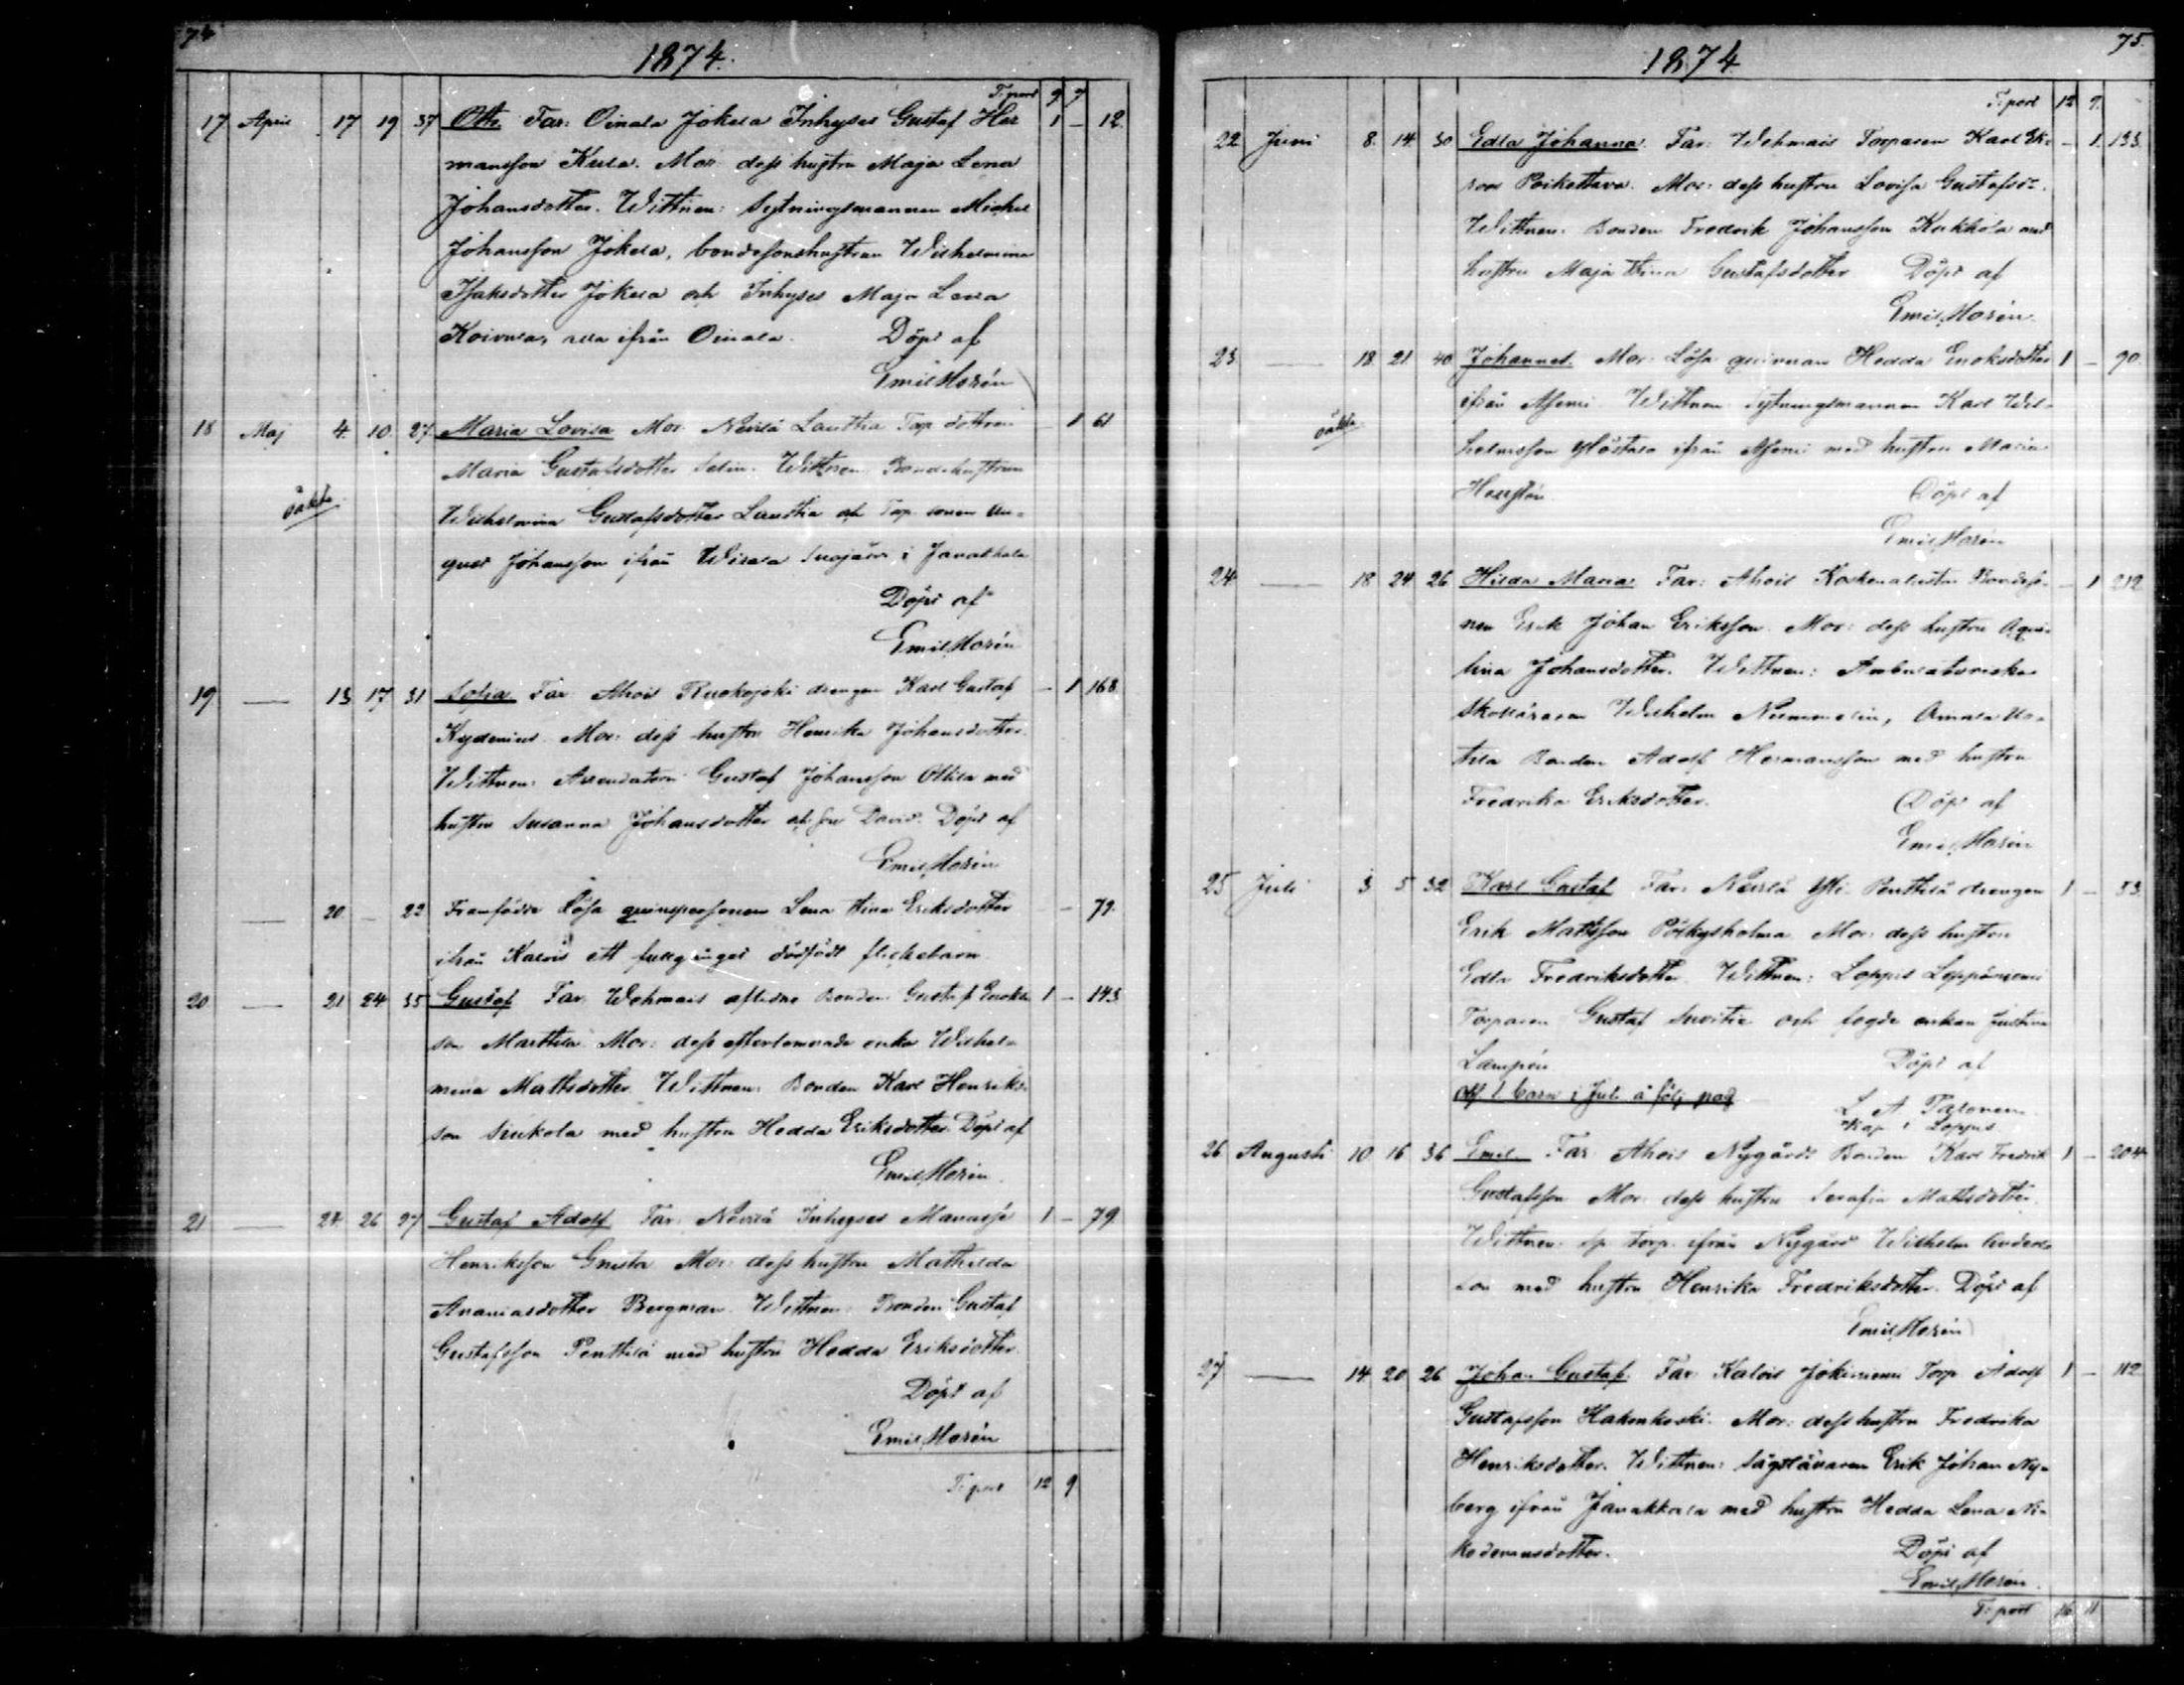 74
1874.
T. port 9 7
17 April 17 19 37 Otto. Far: Oinala Jokela Inhyses Gustaf Her 1 – 12.
mansson Kula. Mor: dess hustru Maja Lena
Johansdotter. Wittnen: Sytningsmannen Michel
Johansson Jokela, bondesonshustrun Wilhelmina
Isaksdotter Jokela och Inhyses Maja Lena
Koivula, alla ifrån Oinala. Döpt af
Emil Horén
18 Maj 4. 10. 27. Maria Lovisa Mor: Nevilä Lauttia Torp. dottren – 1 61
Maria Gustafsdotter Selin. Wittnen: Bondehustrun
oäkta
Wilhelmina Gustafsdotter Lauttia och Torp. sonen Au-
gust Johansson ifrån Wirala Suojärvi i Janakkala
Döpt af
Emil Horén
19 — 13 17 31 Sofia Far: Ahois Ruokojoki drengen Karl Gustaf – 1 168
Kydenius. Mor: dess hustru Henrika Johansdotter.
Wittnen: Arrendatorn Gustaf Johansson Ollila med
hustru Susanna Johansdotter och son David. Döpt af
Emil Horén
— 20 – 22 Framfödde Lösa qvinspersonen Lena Stina Eriksdotter – – 79.
ifrån Kalois ett fullgånget dödfödt flickebarn.
20 — 21 24 35 Gustaf Far: Wehmais aflidne Bonden Gustaf Enoks- 1 – 143.
son Marttila. Mor: dess efterlemnade enka Wilhel-
mina Mattsdotter. Wittnen: Bonden Karl Henriks-
son Sinkola med hustru Hedda Eriksdotter. Döpt af
Emil Horén.
21 — 24 26 27 Gustaf Adolf Far: Nevilä Inhyses Manasse 1 – 79
Henriksson Gnista Mor: dess hustru Mathilda
Ananiasdotter Bergman. Wittnen: Bonden Gustaf
Gustafsson Penttilä med hustru Hedda Eriksdotter.
Döpt af
Emil Horén
T. port 12 9
75.
1874
T. port 12 9.
22 Juni 8. 14. 30 Edla Johanna. Far: Wehmais Torparen Karl Er. – 1. 133.
son Poikottava. Mor: dess hustru Lovisa Gustafsdr.
Wittnen: Bonden Fredrik Johansson Kukkola med
hustru Maja Stina Gustafsdotter Döpt af
Emil Horén.
23 — 18 21 40 Johannes. Mor: Lösa qvinnan Hedda Enoksdotter 1 – 90.
ifrån Wittnen Sytningsmannen Karl Wil-
oäkta
helmsson ifrån med hustru Maria
Döpt af
Emil Horén
24 — 18 24 26 Hilda Maria. Far: Ahois Bondeso- – 1 212
nen Erik Johan Eriksson. Mor: dess hustru Aqvi-
lina Johansdotter. Wittnen: Ambulatoriska
Skolläraren Wilhelm Nummelin, Oinala Un-
tila Bonden Adolf Hermansson med hustru
Fredrika Eriksdotter. Döpt af
Emil Horén
25 Juli 3 5 32 Karl Gustaf Far: Nevilä Yli Penttilä drengen 1 – 53.
Erik Mattsson Pöikysholma Mor: dess hustru
Edla Fredriksdotter Wittnen: Loppis
Torparen Gustaf Suvitie och fogde enkan Justina
Lampén Döpt af
Obs! 1 barn i Juli å följ. pag. L. A. Talonen
Kap. i Loppis.
26 Augusti 10 16 36 Emil. Far: Ahois Nygårds Bonden Karl Fredrik 1 – 204
Gustafsson Mor: dess hustru Serafia Mattsdotter.
Wittnen: Sp. torp. ifrån Nygård Wilhelm Anders-
son med hustru Henrika Fredriksdotter. Döpt af
Emil Horén
27 — 14 20 26 Johan Gustaf. Far: Kalois Jokiniemi Torp. Adolf 1 – 112
Gustafsson Hakenkoski. Mor: dess hustru Fredrika
Henriksdotter. Wittnen: Erik Johan Ny-
berg ifrån Janakkala med hustru Hedda Lena Ni-
kodemusdotter. Döpt af
Emil Horén.
T. port 16 11